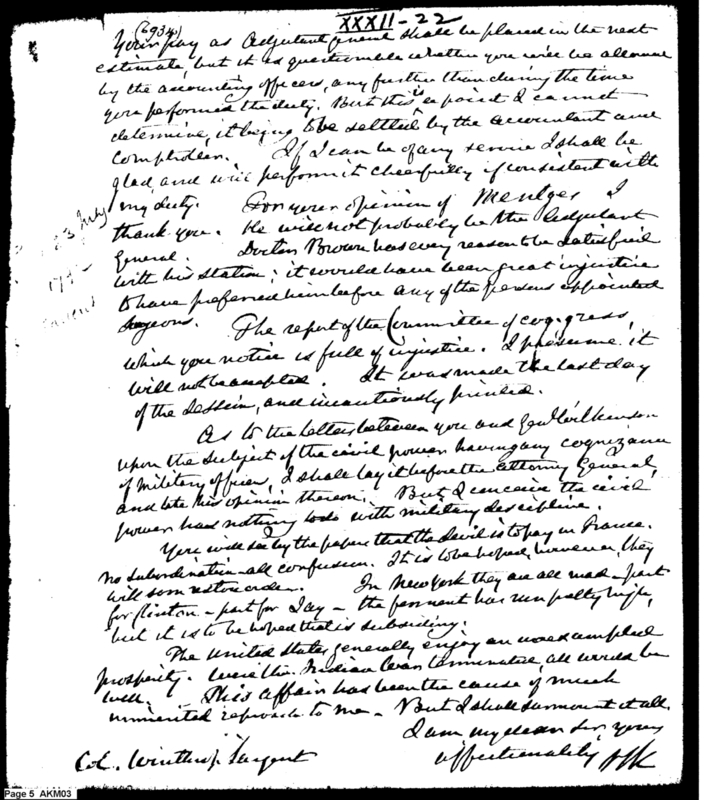 (6934)
XXXII-22
Your pay as Adjutant general shall be placed in the next
estimate, but it is questionable whether you will be allowed
by the accounting officers, any further than during the time
you performed the duty. But this is a point I cannot
determine, it being to be settled by the accountant and
comptroller. If I can be of any service I shall be
glad, and will perform it cheerfully if consistent with
my duty. For your opinion of Mentges I
thank you. He will not probably be the Adjutant
General. Doctor Brown has every reason to be satisfied
with his station; it would have been great injustice
to have preferred him before any of the persons appointed
Surgeons. The report of the Committee of congress,
which you notice is full of injustice. I presume it
will not be accepted. It was made the last day
of the Session, and incautiously printed.
As to the letters between you and Genl Wilkinson
upon the subject of the civil power having any cognizance
of military officers, I shall lay it before the attorney General,
and take his opinion thereon. But I conceive the civil
power has nothing to do with military descipline.
You will see by the papers that the devil is to pay in France.
no subordination all confusion. It is to be hoped, however, they
will soon restore order. In New York they are all mad - part
for Clinton - part for Jay - the ferment has run pretty high,
but it is to be hoped that is subsiding.
The United States generally enjoy an unexampled
prosperity. Were the Indian War terminated, all would be
well. This affair has been the cause of much
unmerited reproach to me - But I shall surmount it all.
I am my dear Sir yours
affectionately HK
Col. Winthrop Sargent
23 July
Page 5 AKM03